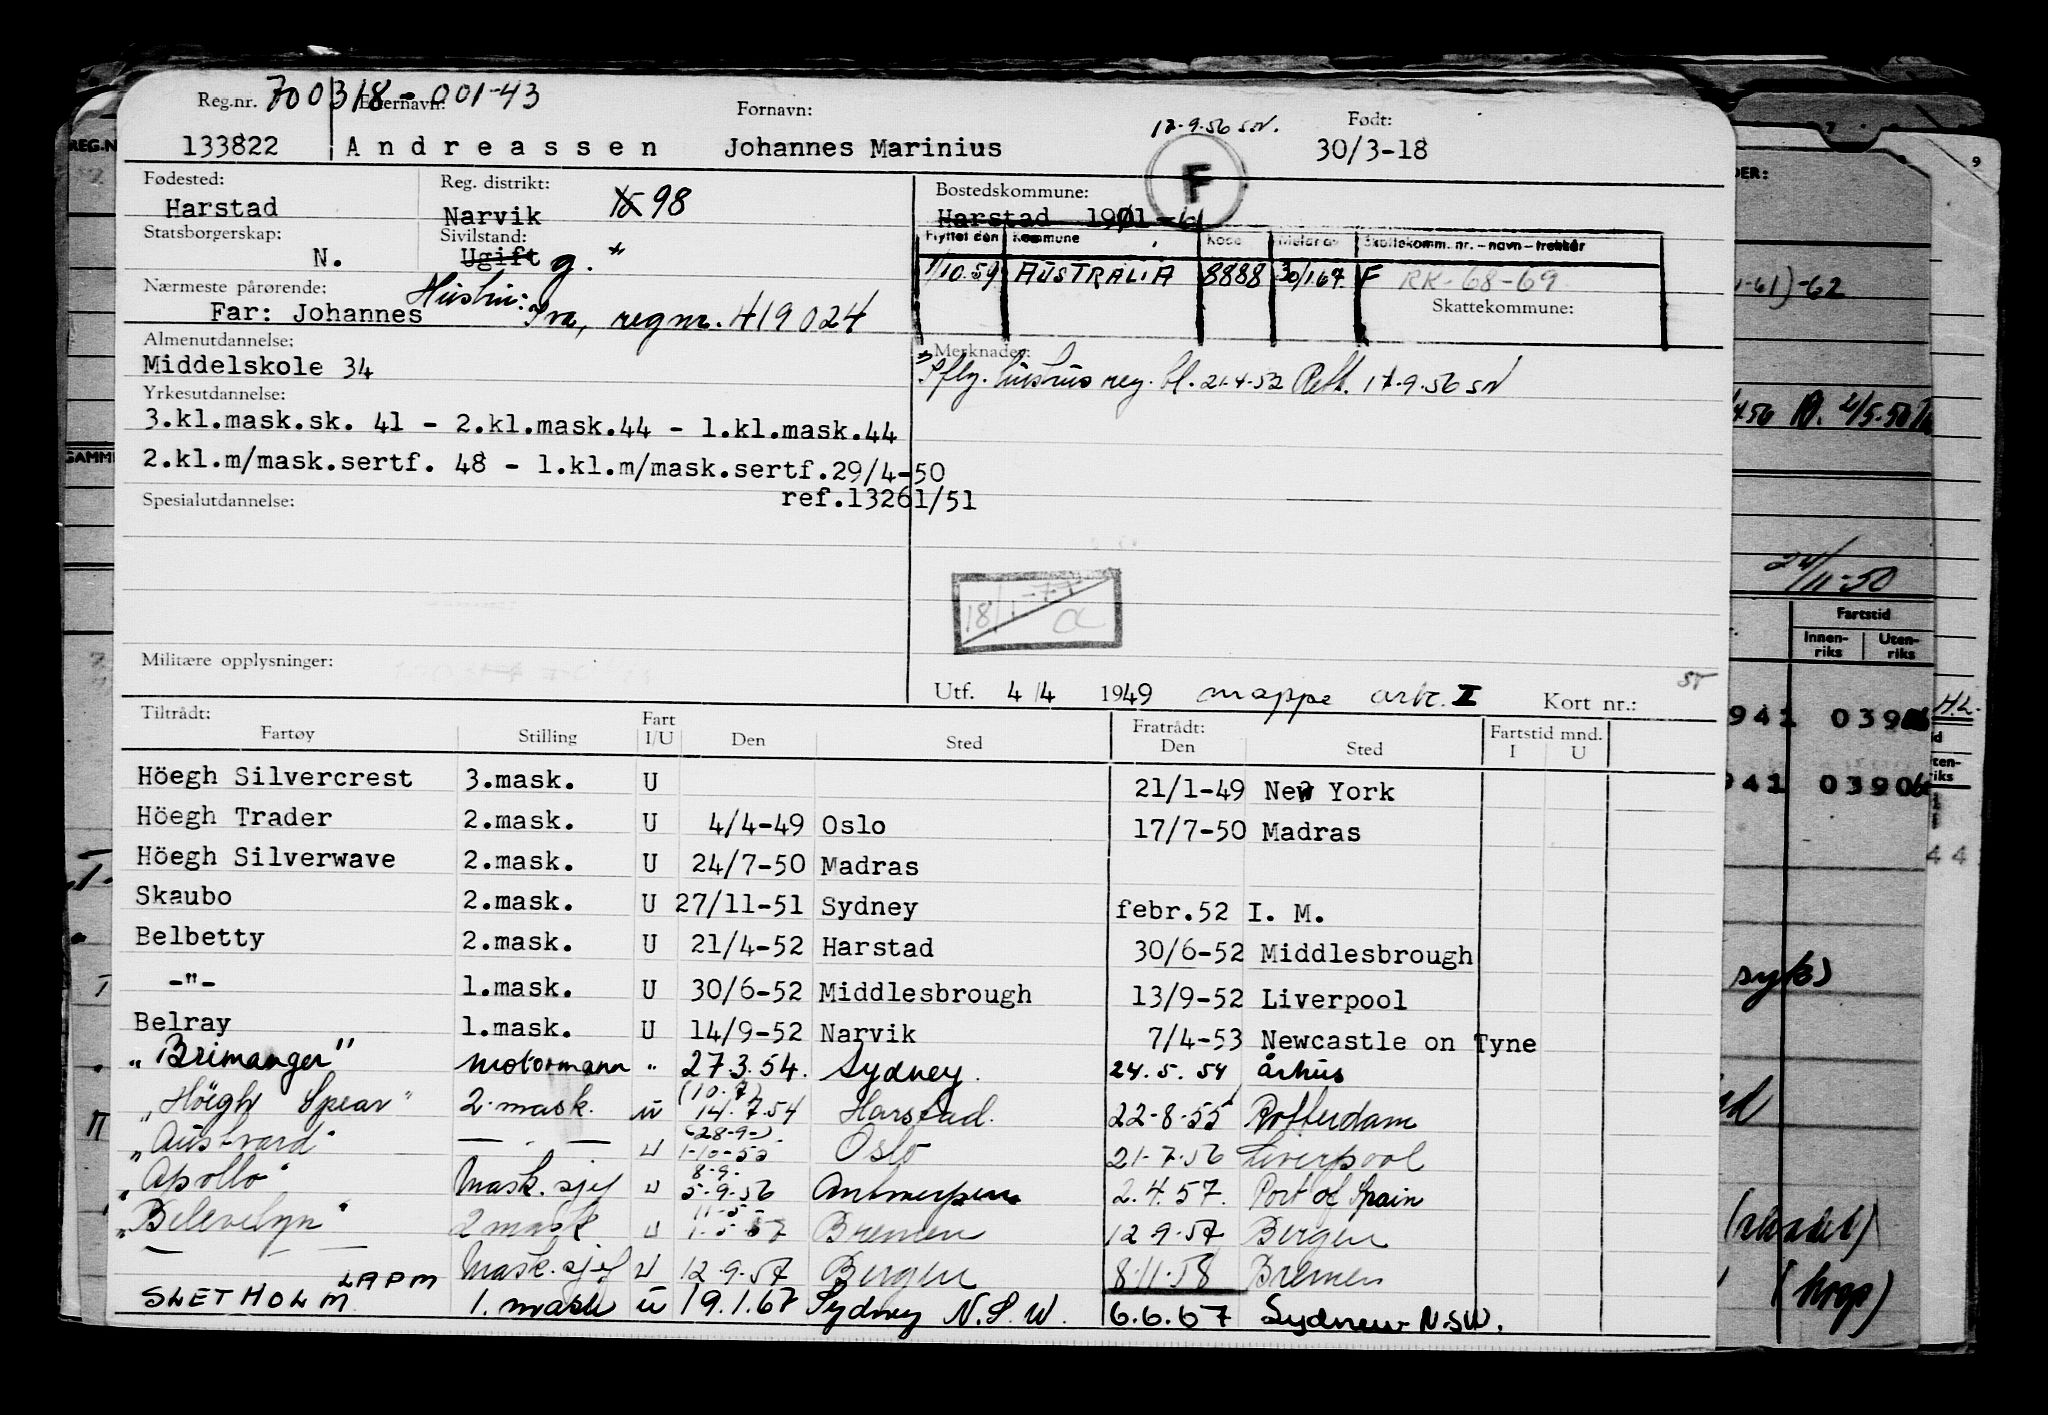 Reg.nr. 700318-001-43 Etternavn: Fornavn: Født:
133822 Andreassen Johannes Marinius 17-9-56 SN. 30/3-18
F
Fødested: Reg. distrikt: Bostedskommune:
Harstad Narvik 98 Harstad 1901
Statsborgerskap: Sivilstand: Flyttet den Kommune Kode Meldt av Skattekomm. nr. – navn – trekkår
N. Ugift g. 1/10.59 AUSTRALIA 8888 30/1.67. F RK-68-69
Nærmeste pårørende: Skattekommune:
Far: Johannes Hustru: Iva, regnr. 419024
Almenutdannelse: Merknader:
Middelskole 34 hustrus reg. bl. 21-4-52 Rett. 17-9-56 SN
Yrkesutdannelse:
3.kl.mask.sk. 41 - 2.kl.mask.44 - 1.kl.mask.44
2.kl.m/mask.sertf. 48 - 1.kl.m/mask.sertf.29/4-50
Spesialutdannelse: ref.13261/51
18/1-77
Militære opplysninger:
Utf. 4/4 1949 mappe ark. I Kort nr.:
Tiltrådt: Fart Fratrådt: Fartstid mnd.
Fartøy Stilling I/U Den Sted Den Sted I U
Höegh Silvercrest 3.mask. U 21/1-49 New York
Höegh Trader 2.mask. U 4/4-49 Oslo 17/7-50 Madras
Höegh Silverwave 2.mask. U 24/7-50 Madras
Skaubo 2.mask. U 27/11-51 Sydney febr.52 I. M.
Belbetty 2.mask. U 21/4-52 Harstad 30/6-52 Middlesbrough
-"- 1.mask. U 30/6-52 Middlesbrough 13/9-52 Liverpool
Belray 1.mask. U 14/9-52 Narvik 7/4-53 Newcastle on Tyne
"Brimanger" motormann " 27.3.54. Sydney. 24.5.54 århus
(10.7)
"Höigh Spear" 2.mask. U 14.7.54 Harstad. 22-8-55 Rotterdam
(28-9-)
"Austvard" — " — U 1-10-55 Oslo 21-7-56 Liverpool
8-9.
"Apollo" Mask.sjef U 5-9-56 Antwerpen 2.4.57. Port of Spain
11-5-
"Belevelyn" 2 mask U 1-5-57 Bremen 12.9.57 Bergen
— — Mask.sjef U 12.9.57 Bergen 8.11.58 Bremen
SLETHOLM LAPM 1. mask U 19.1.67 Sydney N.S.W. 6.6.67 Sydney N.S.W.
REG.N
9
-61)-62
24/11-50
Fartstid
Innen-riks Uten-riks
941 0390
H.L.
941 03906
44
syk)